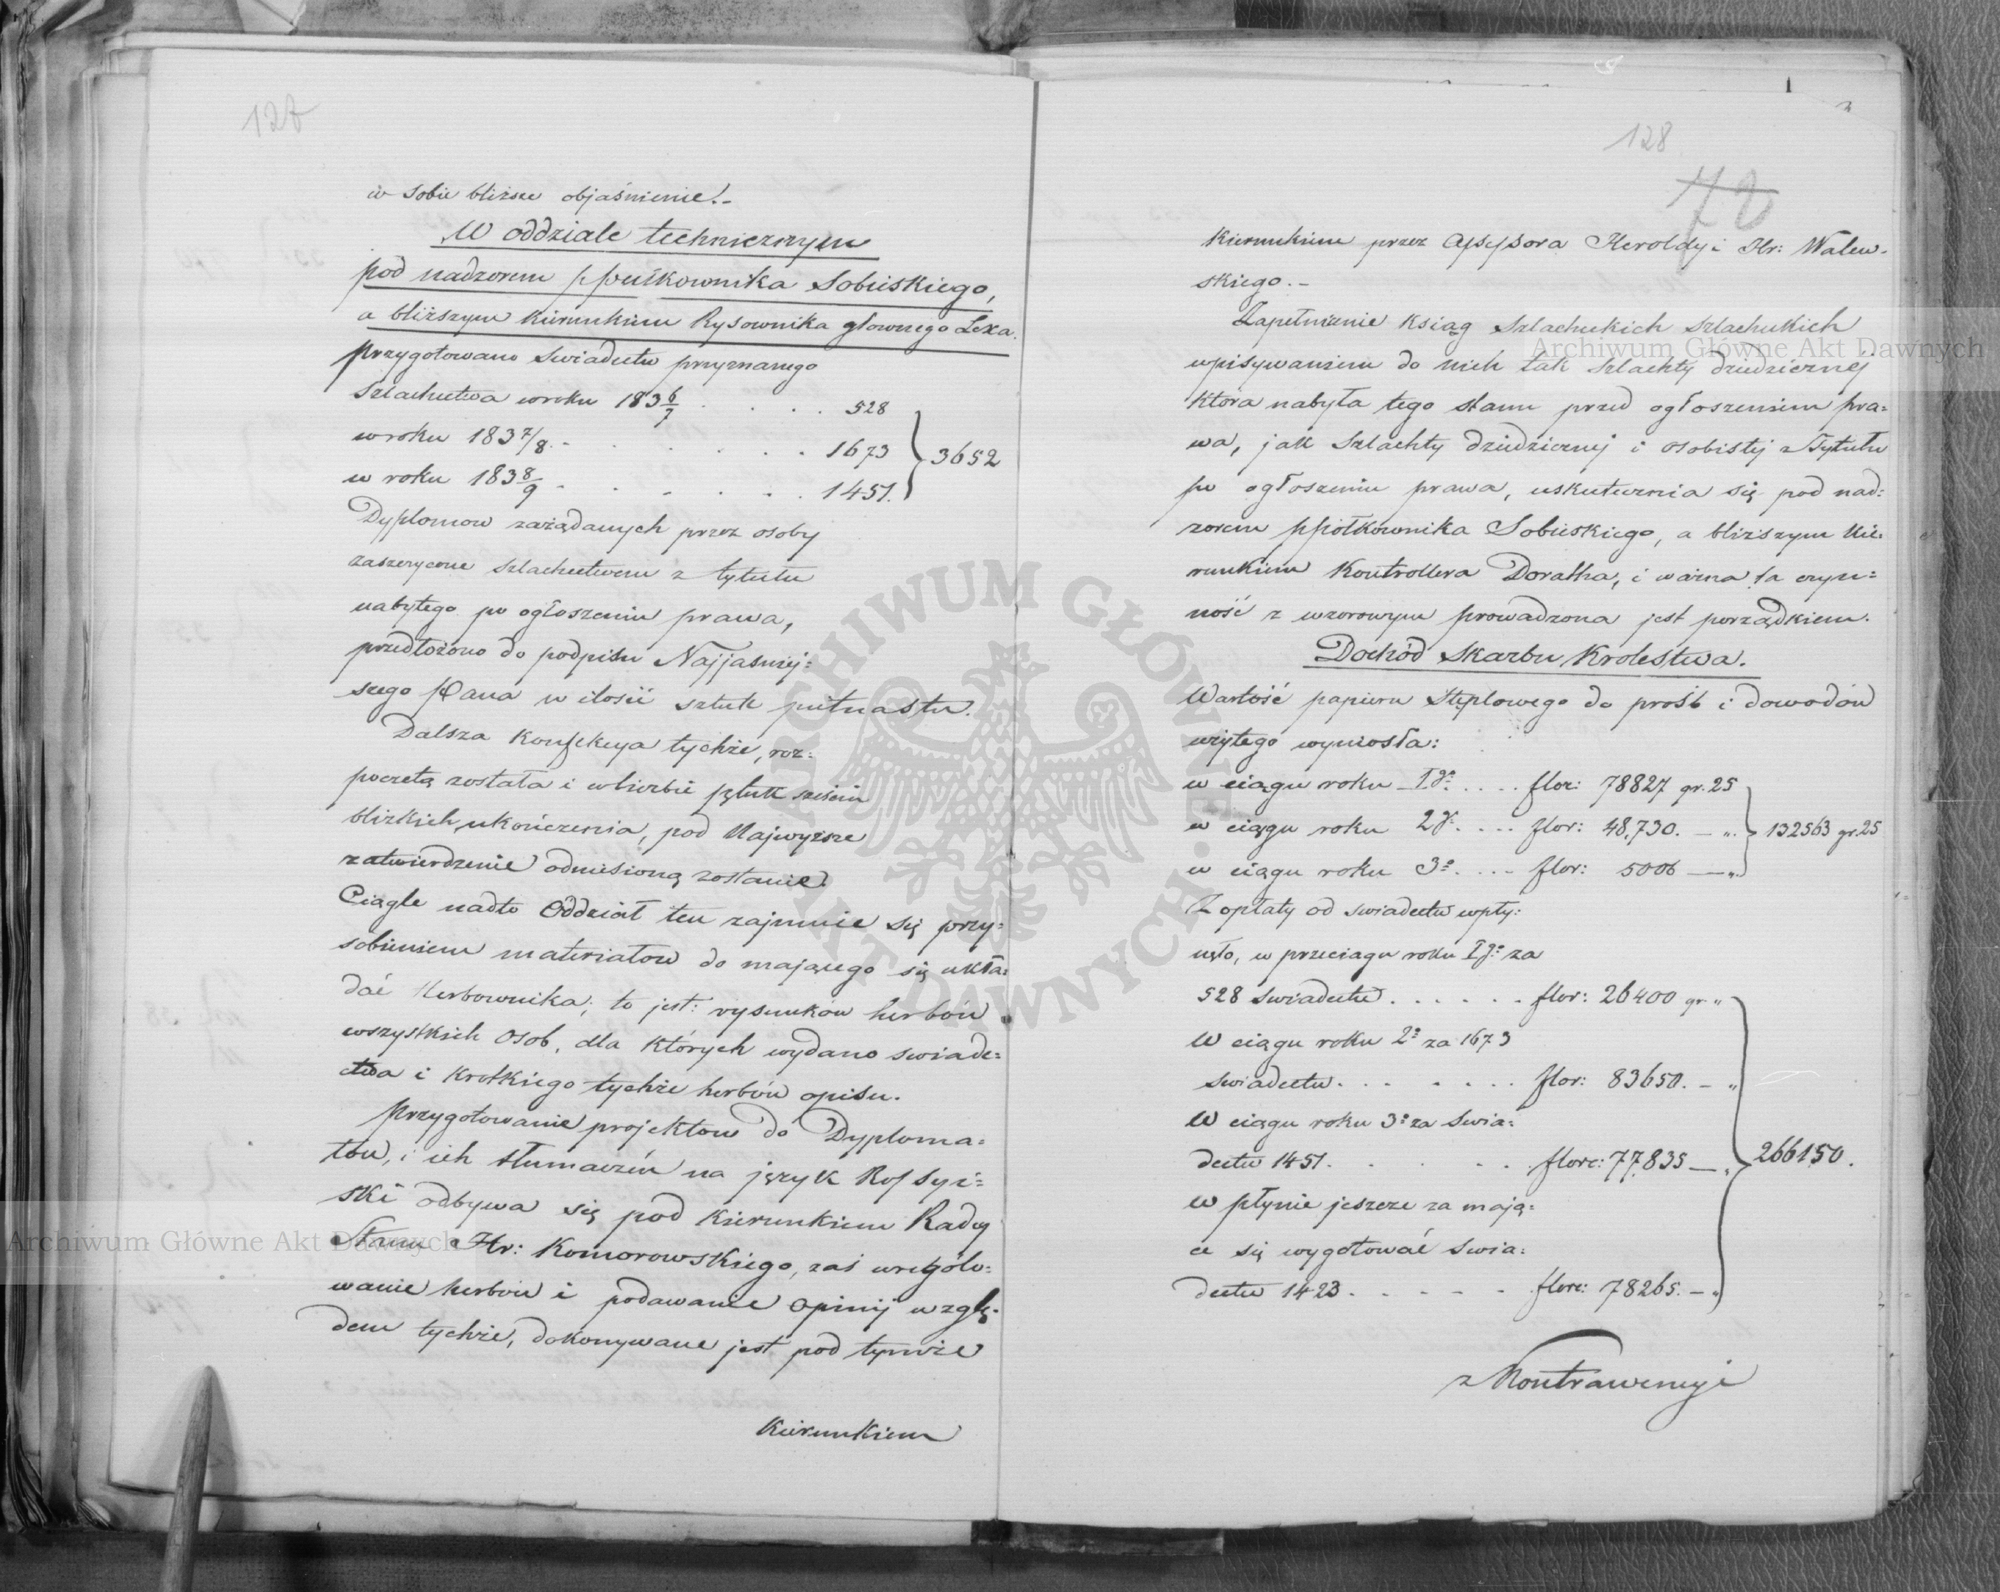 127
w sobie bliższe objaśnienie.-
W oddziale technicznym
pod nadzorem ppułkownika Sobieskiego,
a bliższym kierunkiem Rysownika głownego Lexa.
Przygotowano swiadectw przyznanego
szlachectwa w roku 183 6/7 . . . . 528
w roku 183 7/8 . - . . . . . 1673 } 3652
w roku 183 8/9 - . . . . . . 1451.
Dyplomow zażądanych przez osoby
zaszczycone szlachectwem z tytułu
nabytego po ogłoszeniu prawa,
przedłożono do podpisu Najjasniej=
szego Pana w ilosci sztuk piętnastu.
Dalsza konfekcya tychże, roz=
poczetą została i w liczbie sztuk sześciu
blizkich ukończenia, pod Najwyższe
zatwierdzenie odniesioną zostanie.
Ciągle nadto Oddział ten zajmuie się przy=
sobieniem materiałow do maiącego się ukła=
dać Herbownika; to jest: rysunków herbów
wszystkich osob, dla których wydano swiade=
ctwa i krotkiego tychże herbów opisu.
Przygotowanie projektow do Dyploma=
tów, i ich tłumaczeń na język Rossyi=
ski odbywa się pod kierunkiem Radcy
Stanu Hr: Komorowskiego, zaś uregulo=
wanie herbów i podawanie opinij wzglę=
dem tychże, dokonywane jest pod tymże
kierunkiem
128
72
kierunkiem przez Assessora Heroldyi Hr: Walew=
skiego.-
Zapełnianie ksiąg szlacheckich szlacheckich
wpisywaniem do nich tak szlachty dziedzicznej
która nabyła tego stanu przed ogłoszeniem pra=
wa, jak szlachty dziedzicznej i osobistej z Tytułu
po ogłoszeniu prawa, uskutecznia się pod nad=
zorem ppółkownika Sobieskiego, a bliższym kie=
runkiem Kontrollera Doratha, i ważna ta czyn=
ność z wzorowym prowadzona jest porządkiem.
Dochód Skarbu Krolestwa.
Wartość papieru stęplowego do prośb i dowodów
użytego wyniosła:
w ciągu roku Igo . . . . flor: 78827 gr. 25
w ciągu roku 2go . . . . flor: 48,730. — „ } 132563 gr. 25
w ciągu roku 3o . . . . flor: 5006 — „
Z opłaty od swiadectw wpły=
nęło, w przeciągu roku Igo za
528 swiadectw . . . . . . flor: 26400 gr „
W ciągu roku 2o za 1673
swiadectw . . . . . . . flor: 83650. — „
W ciągu roku 3o za swia=
dectw 1451. . . . . . florc: 77.835 — „ } 266150.
w płynie jeszcze za mają=
ce się wygotować swia=
dectw 1423 . . . . . florc: 78265. — „
z Kontrawencyi
Archiwum Główne Akt Dawnych
Archiwum Główne Akt Dawnych
ARCHIWUM GŁÓWNE AKT DAWNYCH